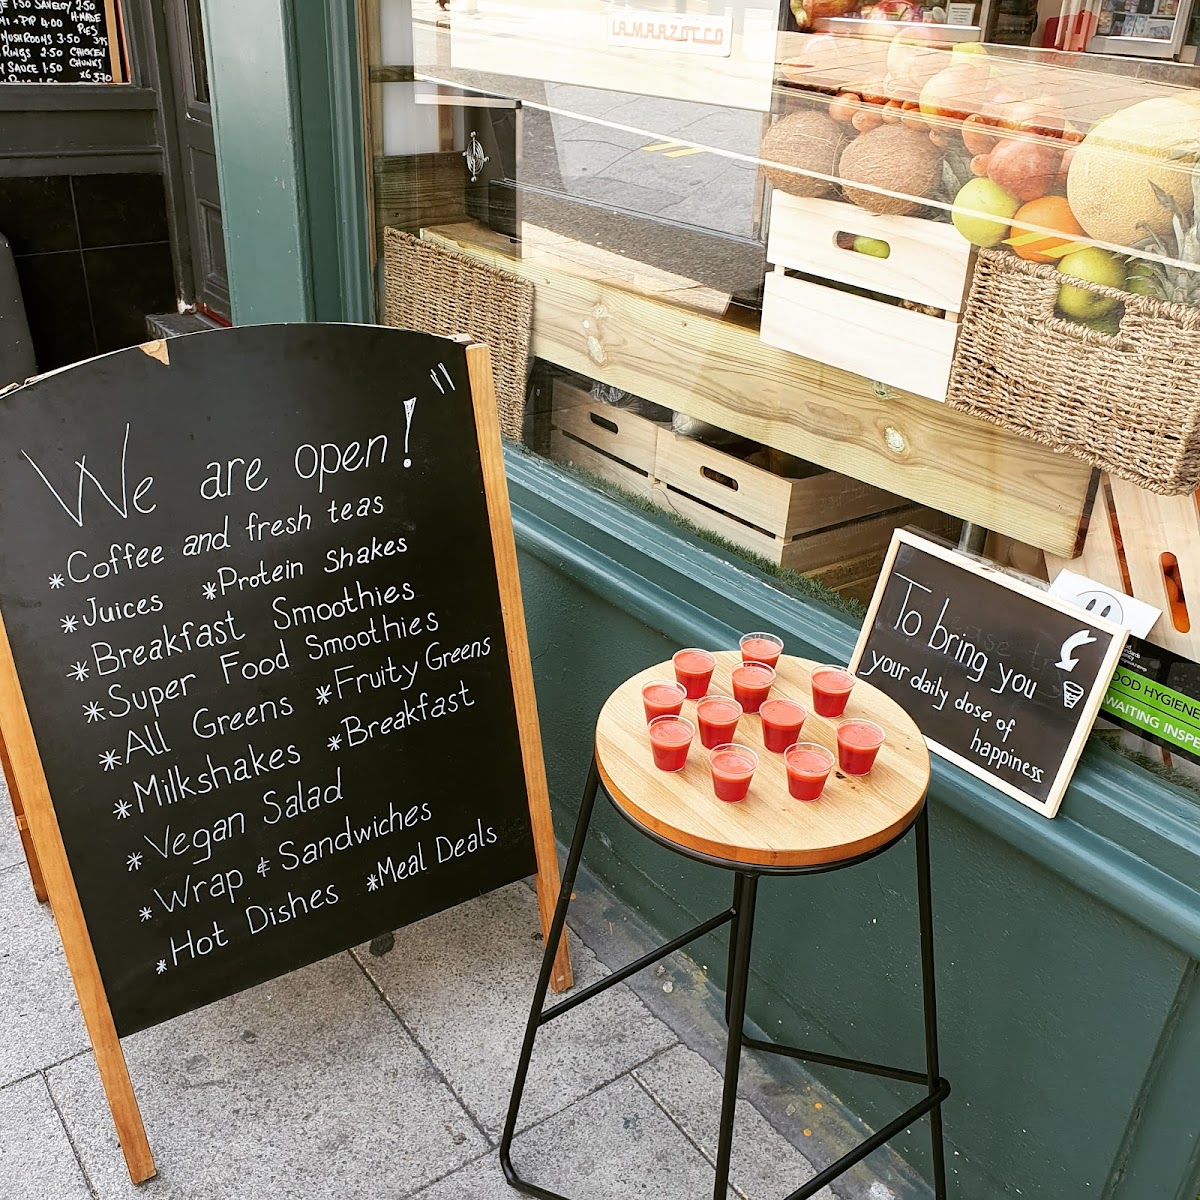 SAVELOY 2.50
4.00 H-MADE
PIES
MUSHROOMS 3.50 3.75
RINGS 2.50 CHICKEN
SAUCE 1.50 CHUNKS
x6 3.70
LA MARZOCCO
We are open!
*Coffee and fresh teas
*Juices *Protein Shakes
*Breakfast Smoothies
*Super Food Smoothies
*All Greens *Fruity Greens
*Milkshakes *Breakfast
*Vegan Salad
*Wrap & Sandwiches
*Hot Dishes *Meal Deals
To bring you
your daily dose of
happiness
OOD HYGIENE
AWAITING INSPE